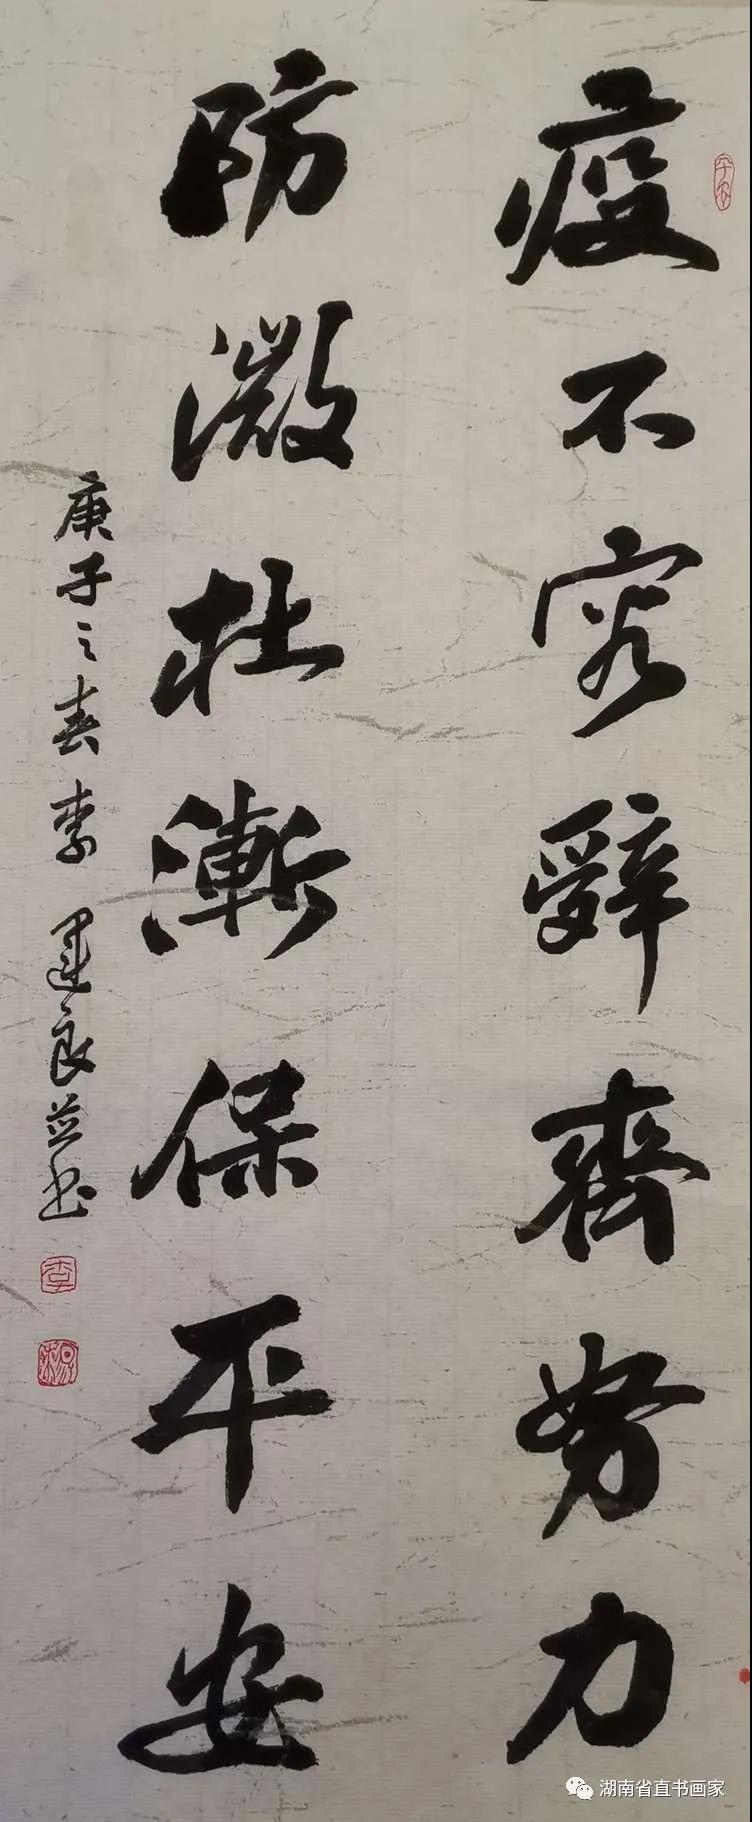 疫不容辭齊努力
防微杜漸保平安
庚子之春李建良並书
湖南省直书画家